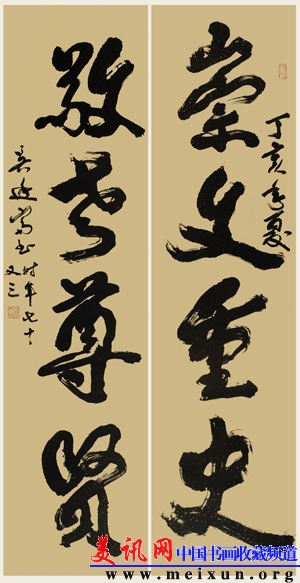 丁亥年夏
崇文重史
敬老尊贤
书时年七十
又三
美讯网 中国书画收藏频道
www.meixun.org